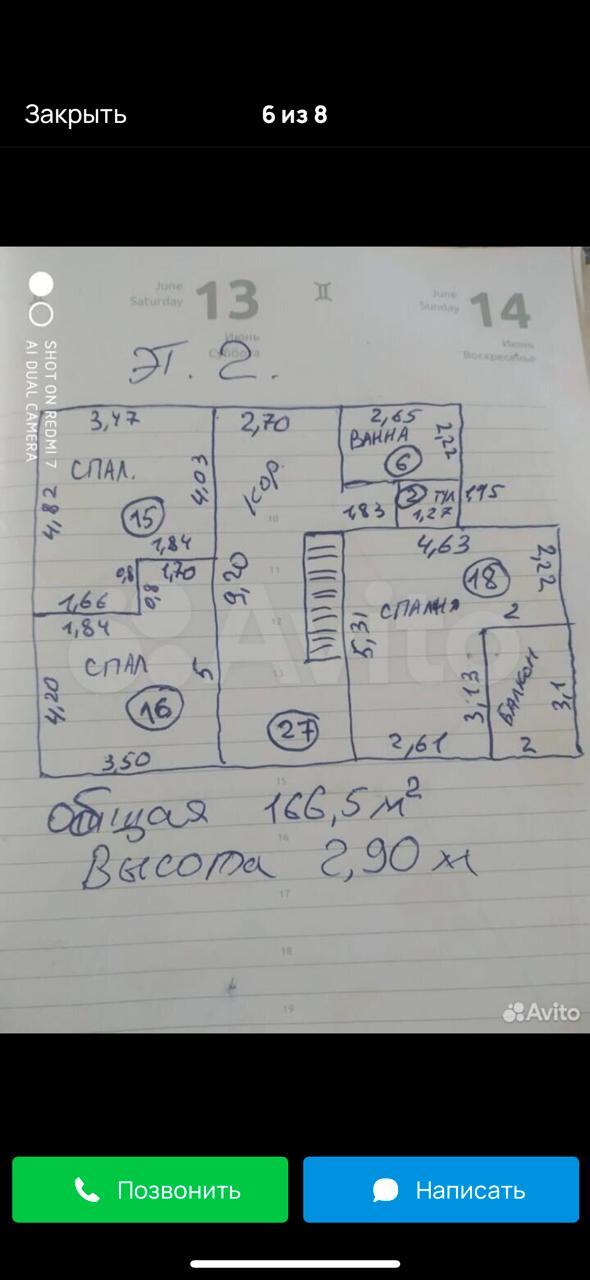 Закрыть
6 из 8
SHOT ON REDMI 7
AI DUAL CAMERA
June
Saturday
13
Июнь
Суббота
June
Sunday
14
Июнь
Воскресенье
Эт. 2.
3,47
2,70
2,65
ВАННА
2,22
6
СПАЛ.
4,03
Кор.
4,82
15
2 ТУЛ
1,15
1,83
1,27
10
1,84
4,63
0,8
1,70
0,8
9,20
11
2,22
18
1,66
1,84
12
5,31
СПАЛНЯ
2
Avito
СПАЛ
5
13
4,20
16
27
3,13
БАЛКОН
3,1
3,50
2,61
2
15
Общая 166,5 м²
16
Высота 2,90 м
17
18
19
Avito
Позвонить
Написать